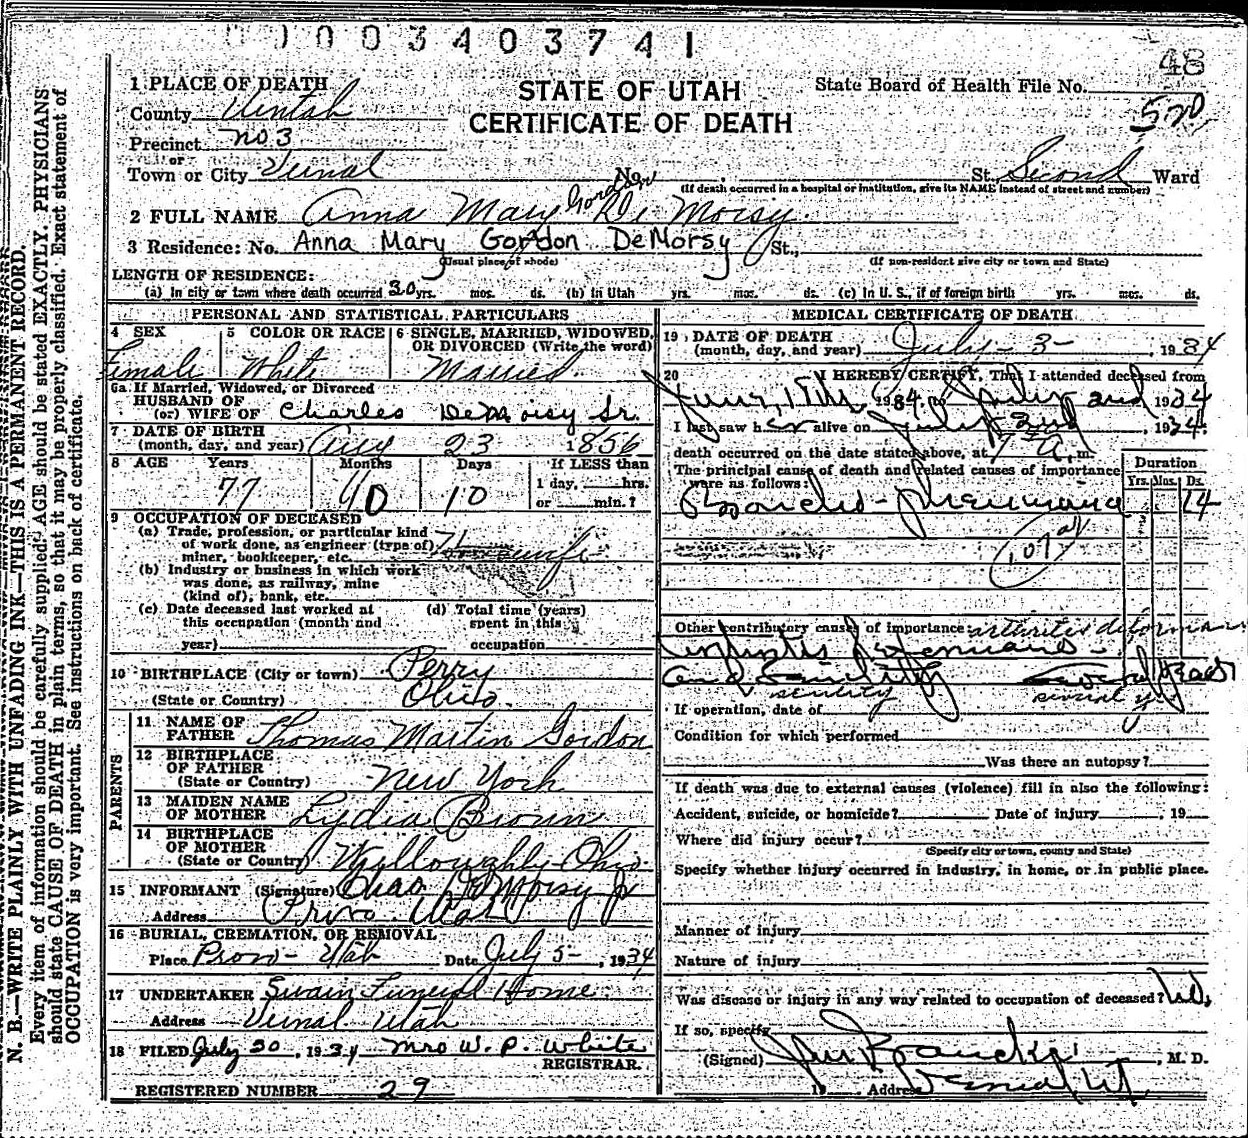 0100340 3741
48
1 PLACE OF DEATH
STATE OF UTAH
State Board of Health File No.
County Uintah
CERTIFICATE OF DEATH
520
Precinct No. 3
or
Town or City Vernal No. St. Second Ward
(If death occurred in a hospital or institution, give its NAME instead of street and number)
2 FULL NAME Anna Mary Gordon De Moisy
3 Residence: No. Anna Mary Gordon DeMorsy St.,
(Usual place of abode) (If non-resident give city or town and State)
LENGTH OF RESIDENCE:
(a) In city or town where death occurred 30 yrs. mos. ds. (b) In Utah yrs. mos. ds. (c) In U. S., if of foreign birth yrs. mos. ds.
PERSONAL AND STATISTICAL PARTICULARS
4 SEX 5 COLOR OR RACE 6 SINGLE, MARRIED, WIDOWED, OR DIVORCED (Write the word)
Female White Married
6a If Married, Widowed, or Divorced
HUSBAND OF
(or) WIFE OF Charles DeMoisy Sr.
7 DATE OF BIRTH
(month, day, and year) Aug 23 1856
8 AGE Years Months Days If LESS than
77 10 10 1 day, hrs.
or min.?
9 OCCUPATION OF DECEASED
(a) Trade, profession, or particular kind
of work done, as engineer (type of) Housewife
miner, bookkeeper, etc.
(b) Industry or business in which work
was done, as railway, mine
(kind of), bank, etc.
(c) Date deceased last worked at (d) Total time (years)
this occupation (month and spent in this
year) occupation
10 BIRTHPLACE (City or town) Perry
(State or Country) Ohio.
PARENTS
11 NAME OF
FATHER Thomas Martin Gordon
12 BIRTHPLACE
OF FATHER New York
(State or Country)
13 MAIDEN NAME
OF MOTHER Lydia Brown
14 BIRTHPLACE
OF MOTHER
(State or Country) Willoughby-Ohio.
15 INFORMANT (Signature) Chas DeMoisy Jr
Address Provo. Utah
16 BURIAL, CREMATION, OR REMOVAL
Place Provo- Utah Date July 5- , 1934
17 UNDERTAKER Swain Funeral Home
Address Vernal Utah
18 FILED July 20 , 1934 Mrs W. P. White
REGISTRAR.
REGISTERED NUMBER 29
MEDICAL CERTIFICATE OF DEATH
19 DATE OF DEATH
(month, day, and year) July - 3 - , 1934
20 I HEREBY CERTIFY, That I attended deceased from
1934, to July 2nd 1934
I last saw her alive on July 3rd , 1934.
death occurred on the date stated above, at 7 A. m.
The principal cause of death and related causes of importance
were as follows:
Duration
Yrs. Mos. Ds.
Broncho-pneumonia 14
107a
Other contributory causes of importance: arthritis deformans
and Senility Several years
senility several y
If operation, date of
Condition for which performed
Was there an autopsy?
If death was due to external causes (violence) fill in also the following:
Accident, suicide, or homicide? Date of injury , 19
Where did injury occur?
(Specify city or town, county and State)
Specify whether injury occurred in industry, in home, or in public place.
Manner of injury
Nature of injury
Was disease or injury in any way related to occupation of deceased? No.
If so, specify
(Signed) , M. D.
19 Address Vernal Ut
N. B.—WRITE PLAINLY WITH UNFADING INK—THIS IS A PERMANENT RECORD.
Every item of information should be carefully supplied. AGE should be stated EXACTLY. PHYSICIANS
should state CAUSE OF DEATH in plain terms, so that it may be properly classified. Exact statement of
OCCUPATION is very important. See instructions on back of certificate.